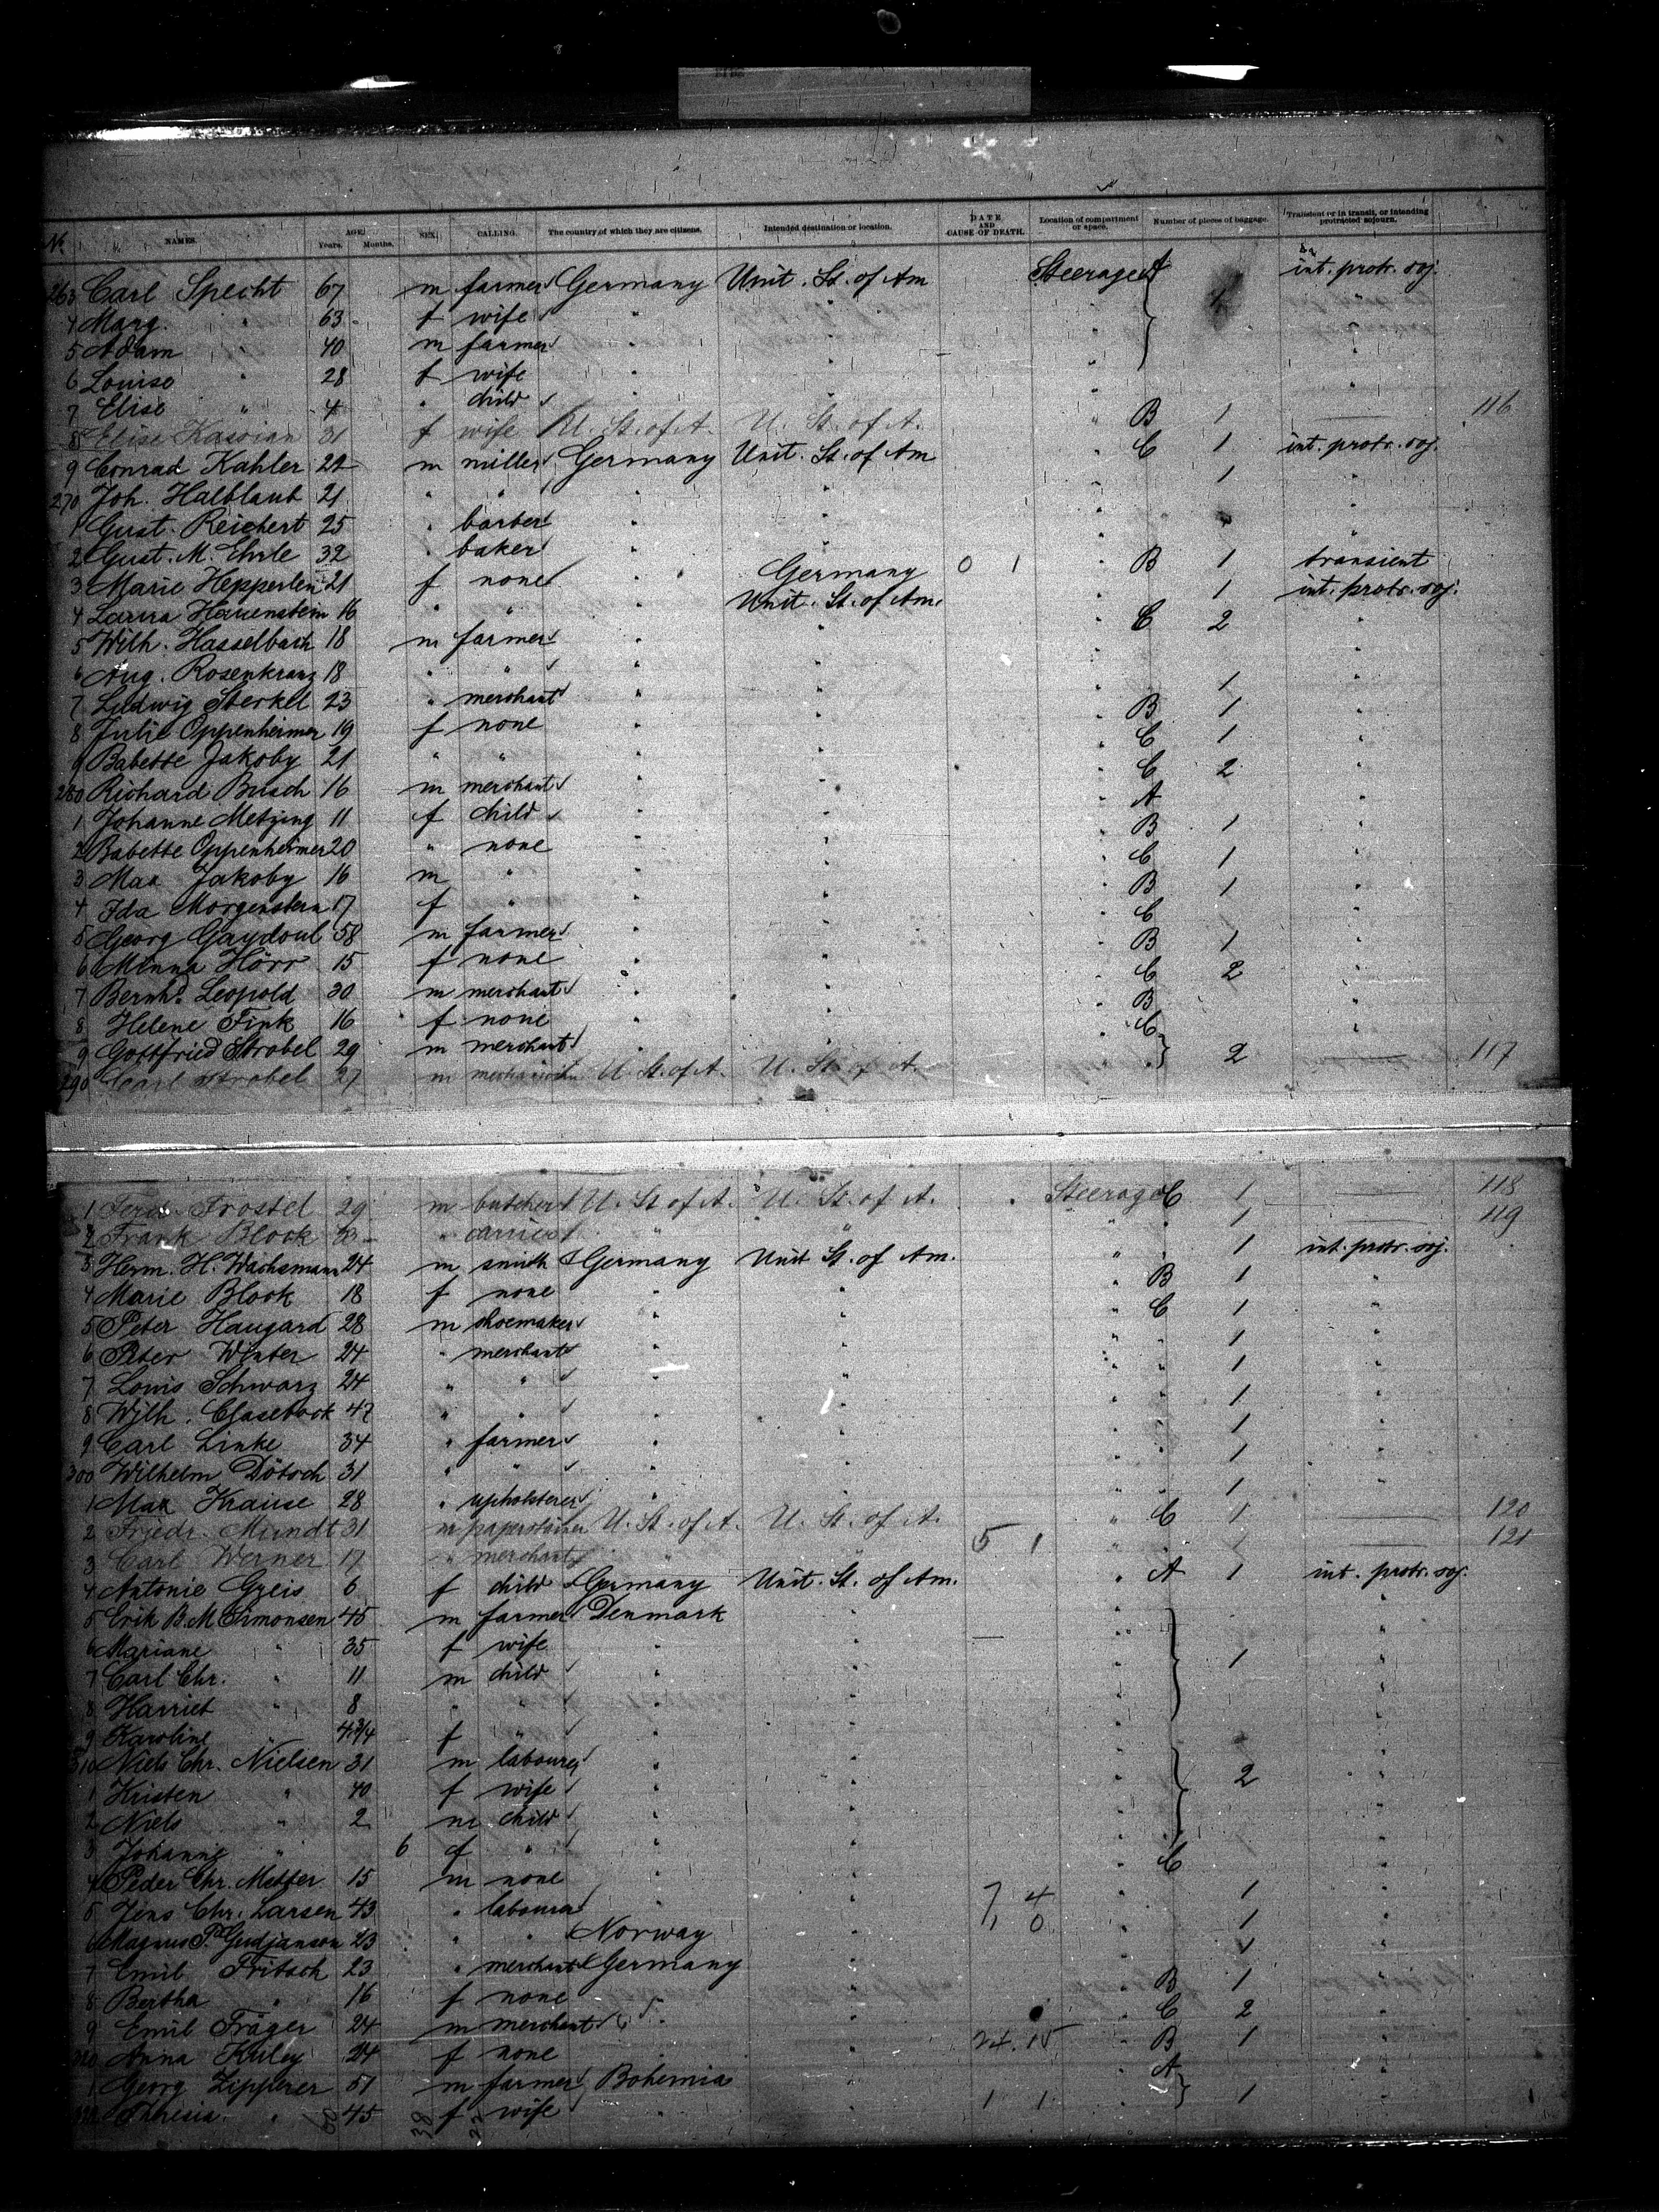 No. NAMES. AGE. Years. Months. SEX. CALLING. The country of which they are citizens. Intended destination or location. DATE AND CAUSE OF DEATH. Location of compartment or space. Number of pieces of baggage. Transient or in transit, or intending protracted sojourn.
263 Carl Specht 67 m farmer Germany Unit. St. of Am Steerage A int. protr. soj.
4 Marg. " 63 f wife " "
5 Adam " 40 m farmer " "
6 Louise " 28 f wife " "
7 Elise " 4 " child " "
8 Elise Kassian 31 f wife U. St. of A. U. St. of A. " B 1 — 116
9 Conrad Kahler 22 m miller Germany Unit. St. of Am " C 1 int. protr. soj.
270 Joh. Halblaub 21 " " " " 1 "
1 Gust. Reichert 25 " barber " "
2 Gust. M. Ehrle 32 " baker " "
3 Marie Hepperlen 21 f none " Germany 0 1 " B 1 transient
4 Laura Hauenstein 16 " " Unit. St. of Am. 1 int. protr. soj.
5 Wilh. Hasselbach 18 m farmer " " " C 2 "
6 Aug. Rosenkranz 18 " " " "
7 Ludwig Sterkel 23 " merchant " " " 1 "
8 Julie Oppenheimer 19 f none " " " B 1 "
9 Babette Jakoby 21 " " " " " C 1 "
280 Richard Busch 16 m merchant " " " C 2 "
1 Johanne Metzing 11 f child " " " A "
2 Babette Oppenheimer 20 " none " " " B 1 "
3 Max Jakoby 16 m " " " " C 1 "
4 Ida Morgenstern 17 f " " " " B 1 "
5 Georg Gaydoul 58 m farmer " " " C "
6 Minna Hörr 15 f none " " " B 1 "
7 Bernhd. Leopold 30 m merchant " " " C 2 "
8 Helene Fink 16 f none " " " B "
9 Gottfried Strobel 29 m merchant " " " C "
290 Carl Strobel 27 m U. St. of A. U. St. of A. 2 — 117
1 Ferd. Frostel 29 m butcher U. St. of A. U. St. of A. Steerage C 1 — 118
2 Frank Block " carrier " " " " 1 — 119
3 Herm. H. Wachsmann 24 m smith Germany Unit St. of Am. " " 1 int. protr. soj.
4 Marie Block 18 f none " " " B 1 "
5 Peter Haugard 28 m shoemaker " " " C 1 "
6 Peter Winter 24 " merchant " " " " 1 "
7 Louis Schwarz 24 " " " " " " 1 "
8 Wilh. Clasebook 47 " " " " " " 1 "
9 Carl Linke 34 " farmer " " " " 1 "
300 Wilhelm Dötsch 31 " " " " " " 1 "
1 Max Krause 28 " upholsterer " " " " 1 "
2 Friedr. Mundt 31 m U. St. of A. U. St. of A. " C 1 — 120
3 Carl Werner 17 " merchant " " 5 1 " " 1 — 121
4 Antonie Greis 6 f child Germany Unit. St. of Am. " A 1 int. protr. soj.
5 Erik B. M. Simonsen 45 m farmer Denmark " " "
6 Mariane " 35 f wife " " " "
7 Carl Chr. " 11 m child " " " 1 "
8 Harriet " 8 " " " " " "
9 Karoline " 4 3/4 f " " " " "
310 Niels Chr. Nielsen 31 m labourer " " " "
1 Kristen " 40 f wife " " " 2 "
2 Niels " 2 m child " " " "
3 Johanne " 6 f " " " " "
4 Peder Chr. 15 m none " " " C "
5 Jens Chr. Larsen 43 " labourer " " 7, 4 " 1 "
6 Magnus P. Gudjanson 23 " " Norway " 7, 0 " 1 "
7 Emil Fritsch 23 " merchant Germany " " 1 "
8 Bertha " 16 f none " " B 1 "
9 Emil Fräger 24 m merchant " " " C 2 "
320 Anna 24 f none " 24. 15 " B 1 "
1 Georg Zipperer 51 m farmer Bohemia " " A "
Theresia " 45 f wife " " 1 1 " 1 "